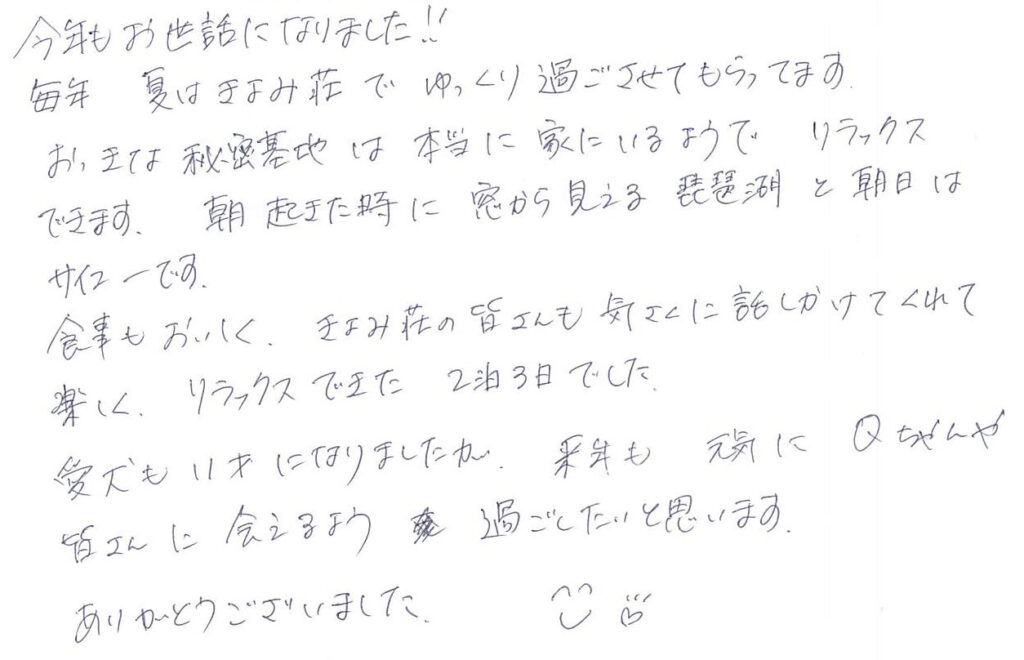 今年もお世話になりました!!
毎年 夏はきよみ荘で ゆっくり過ごさせてもらってます.
おっきな秘密基地は本当に家にいるようで リラックス
できます. 朝起きた時に窓から見える琵琶湖と朝日は
サイコーです.
食事もおいしく. きよみ荘の皆さんも気さくに話しかけてくれて
楽しく. リラックスできた 2泊3日でした.
愛犬も11才になりましたが. 来年も 元気に Qちゃんや
皆さんに会えるよう 過ごしたいと思います.
ありがとうございました.